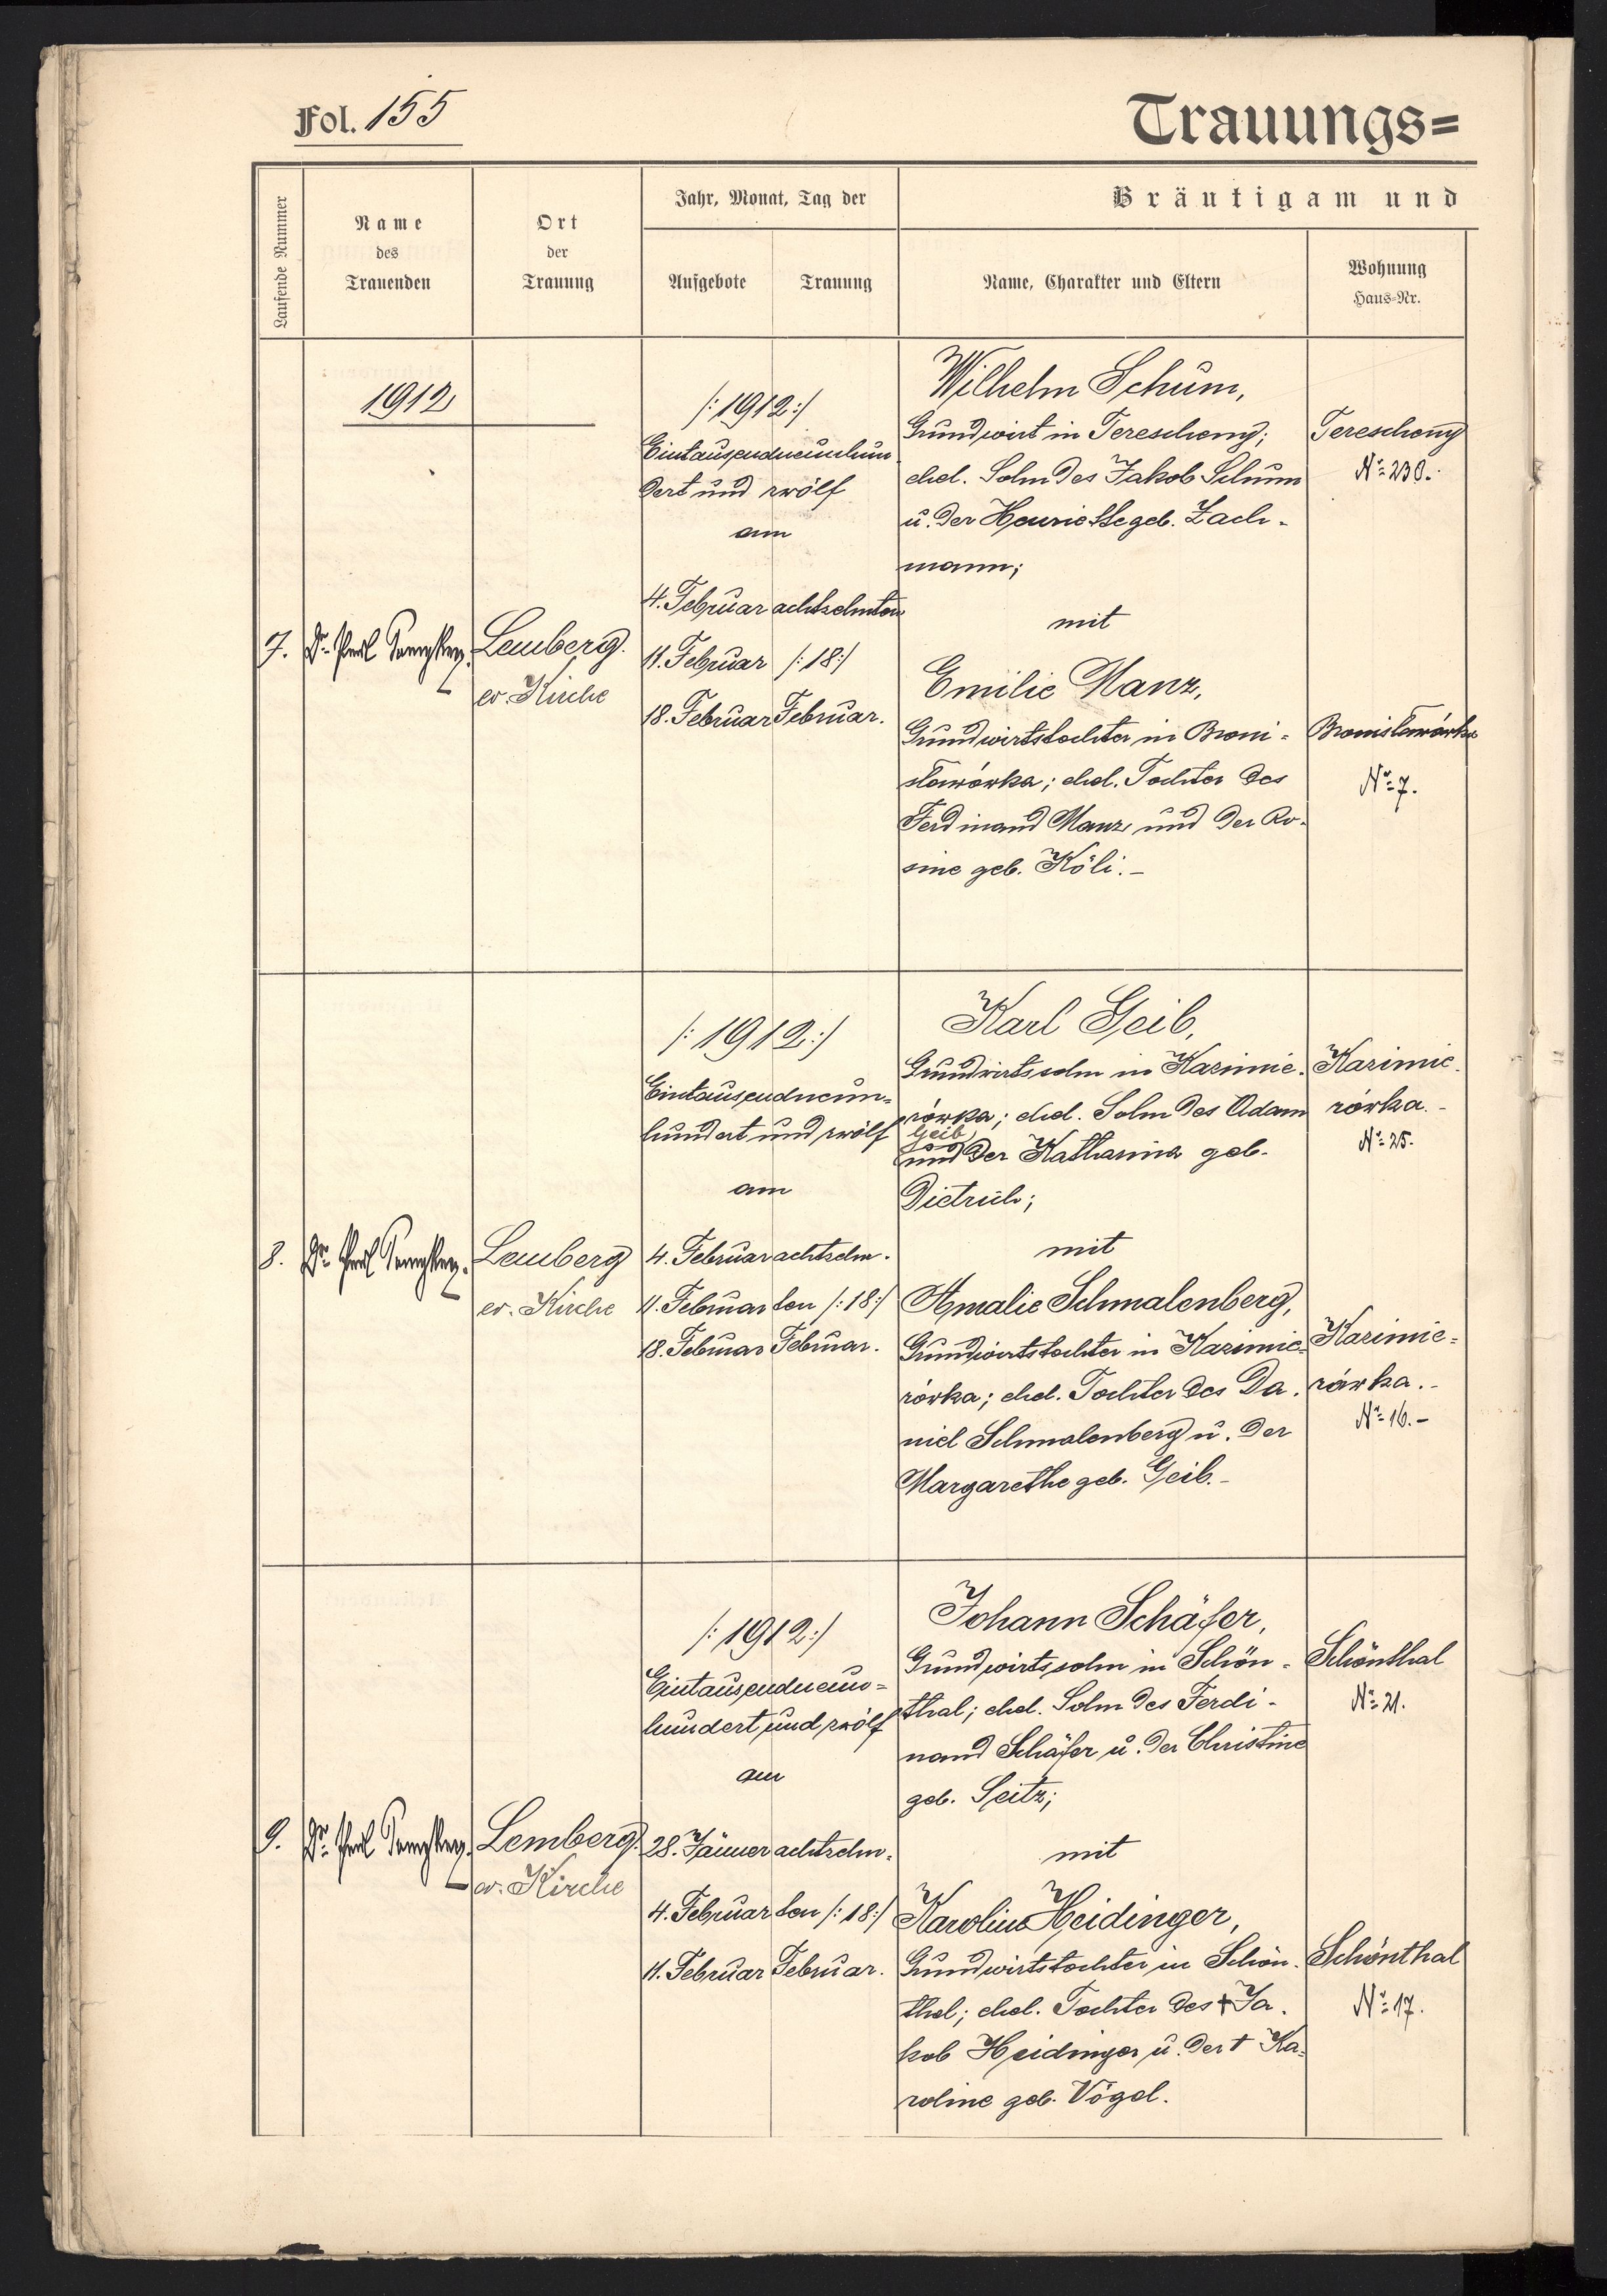 Fol. 155
Trauungs=
Laufende Nummer
Name
des
Trauenden
Ort
der
Trauung
Jahr, Monat, Tag der
Aufgebote
Trauung
Bräutigam und
Name, Charakter und Eltern
Wohnung
Haus-Nr.
1912
7.
Dr. Paul
Lemberg.
ev. Kirche
/:1912:/
Eintausendneunhun
dert und zwölf
am
4. Februar
11. Februar
18. Februar
achtzehnten
/:18:/
Februar.
Wilhelm Schum,
Grundwirt in Terescheny;
ehel. Sohn des Jakob Schum
u. der Henriette geb. Zach-
mann;
mit
Emilie Manz,
Grundwirtstochter in Broni-
sławówka; ehel. Tochter des
Ferdinand Manz und der Ro-
sine geb. Köli.-
Terescheny
No 230.
Bronisławówka
No 7.
8.
Dr. Paul
Lemberg
ev. Kirche
/:1912:/
Eintausendneun-
hundert und zwölf
am
4. Februar
11. Februar
18. Februar
achtzehn-
ten /:18:/
Februar.
Karl Geib,
Grundwirtssohn in Kazimie-
rówka; ehel. Sohn des Adam
Geib
und der Katharina geb.
Dietrich;
mit
Amalie Schmalenberg,
Grundwirtstochter in Kazimie-
rówka; ehel. Tochter des Da-
niel Schmalenberg u. der
Margarethe geb. Geib.-
Kazimie-
rówka.-
No 25.
Kazimie-
rówka.-
No 16.-
9.
Dr. Paul
Lemberg.
ev. Kirche
/:1912:/
Eintausendneun-
hundert und zwölf
am
28. Jänner
4. Februar
11. Februar
achtzehn-
ten /:18:/
Februar.
Johann Schäfer,
Grundwirtssohn in Schön-
thal; ehel. Sohn des Ferdi-
nand Schäfer u. der Christine
geb. Seitz;
mit
Karoline Heidinger,
Grundwirtstochter in Schön-
thal; ehel. Tochter des + Ja-
kob Heidinger u. der + Ka-
roline geb. Vögel.
Schönthal
No 21.
Schönthal
No 17.